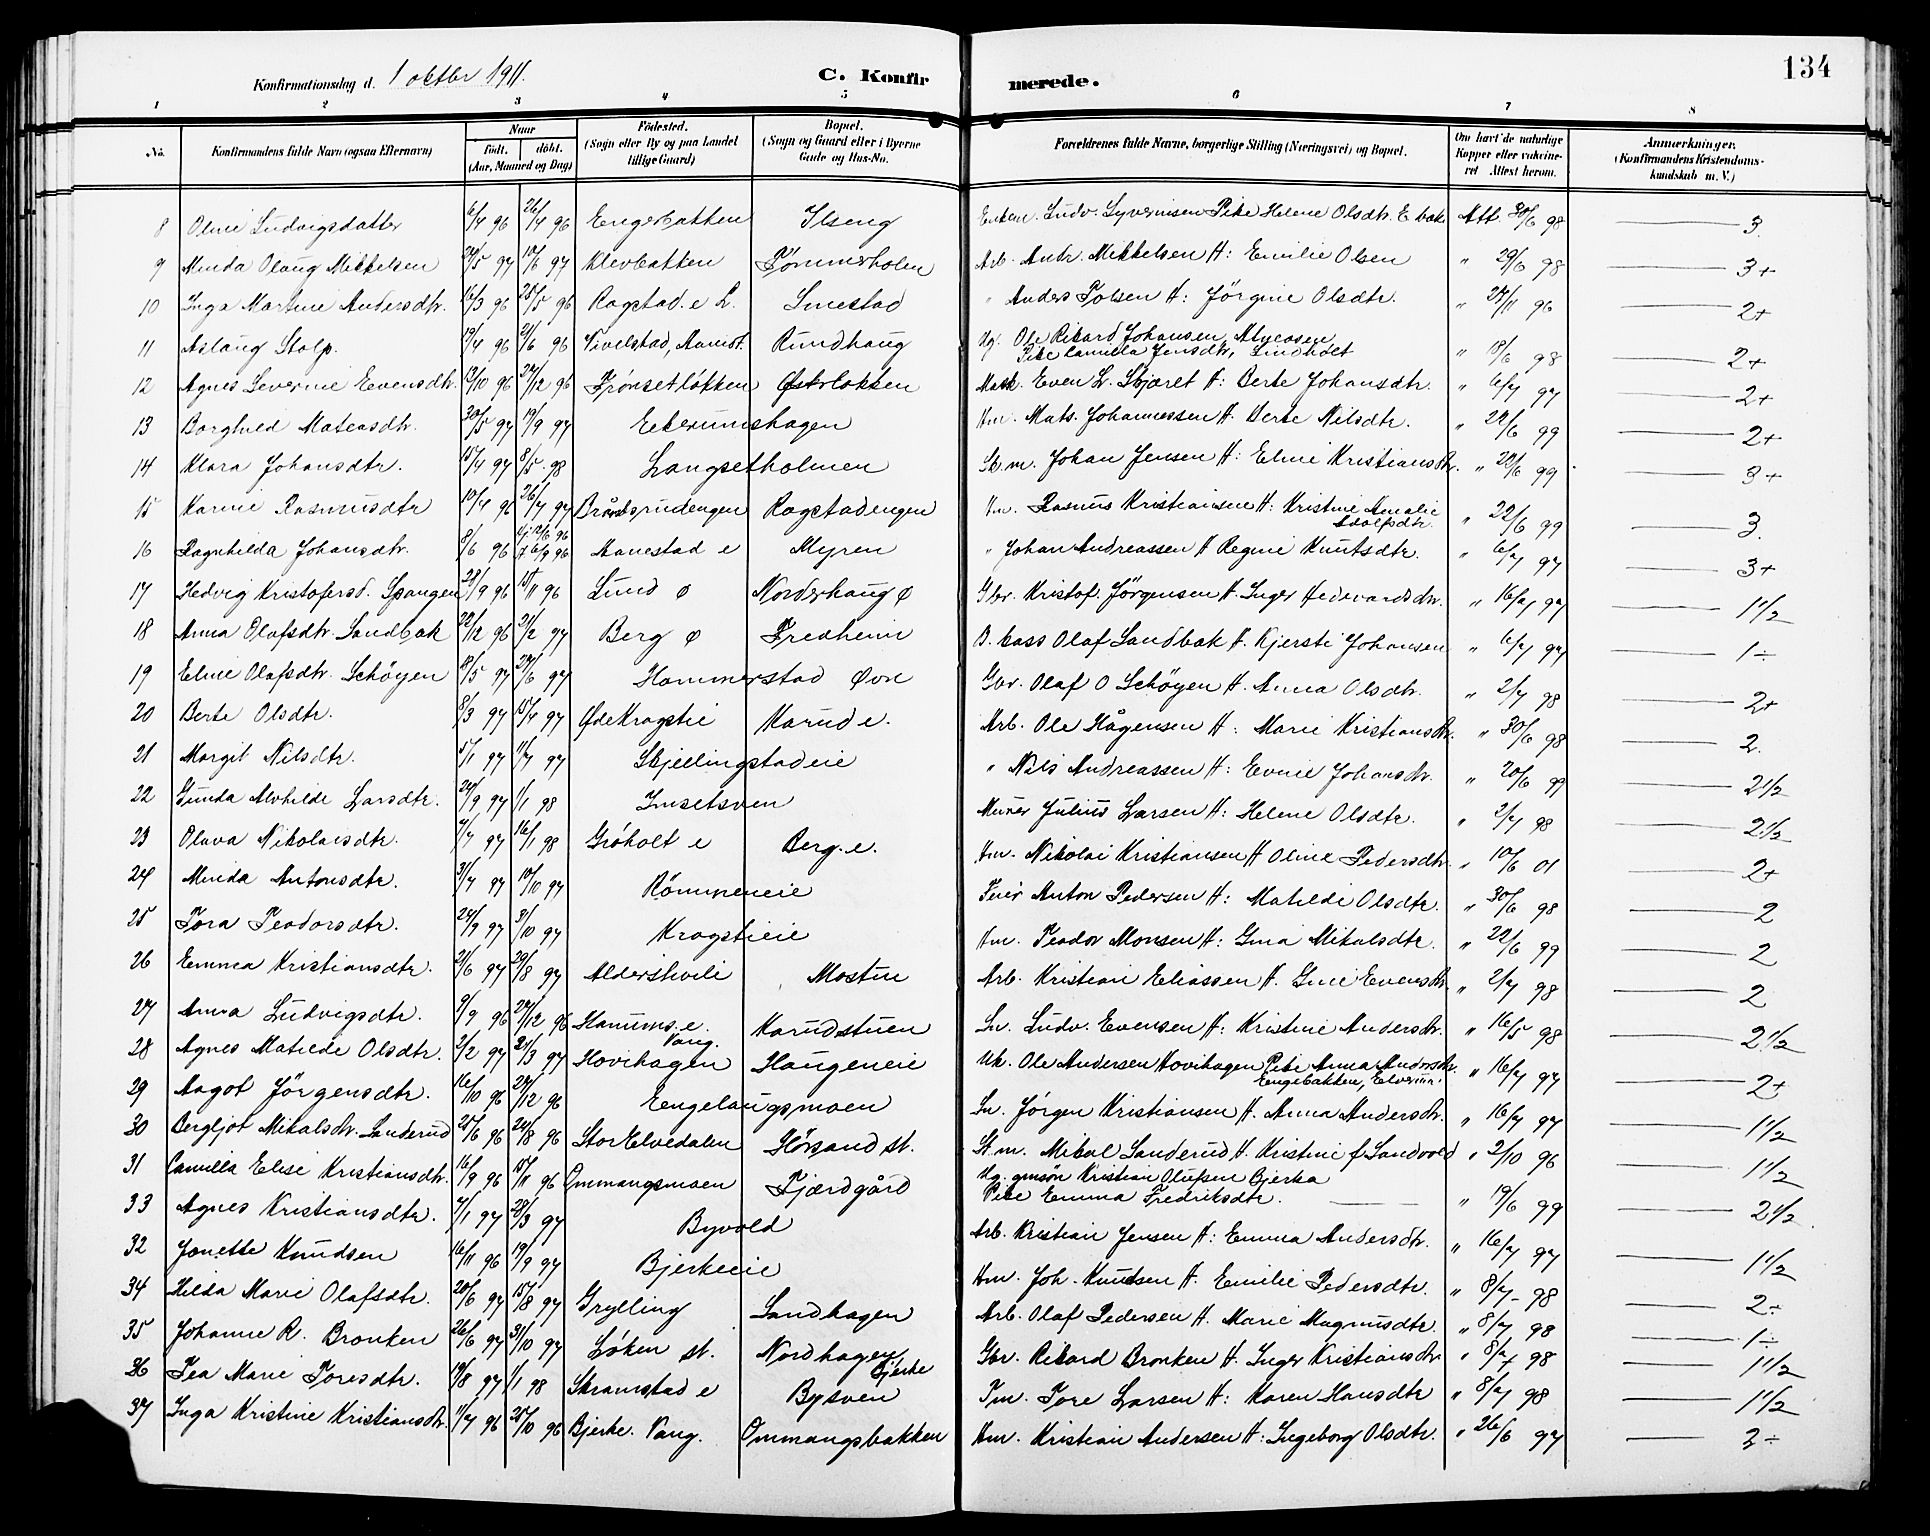 134
Konfirmationsdag d. 1 oktbr 1911.
C. Konfirmerede.
1 2 3 4 5 6 7 8
No. Konfirmandens fulde Navn (ogsaa Efternavn) Naar født. døbt. (Aar, Maaned og Dag) Fødested. (Sogn eller By og paa Landet tillige Gaard) Bopæl. (Sogn og Gaard eller i Byerne Gade og Hus-No. Forældrenes fulde Navne, borgerlige Stilling (Næringsvei) og Bopæl. Om havt de naturlige Kopper eller vakcineret Attest herom. Anmærkninger. (Konfirmandens Kristendomskundskab m. V.)
8 Oline Ludvigsdatter 6/4 96 26/4 96 Engerbakken Ilseng Enkem. Ludv. Syvernsen Pike Helene Olsdtr. E bak Att. 30/6 98 3.
9 Minda Olaug Mikkelsen 24/5 97 10/6 97 Klevbakken Tømmerholen Arb. Andr. Mikkelsen H: Emilie Olsen " 29/6 98 3+
10 Inga Martine Andersdtr. 16/3 96 25/5 96 Rogstad. e L. Smestad " Anders Polsen H: Jørgine Olsdtr. " 24/11 96 2+
11 Aslaug Stolp. 19/4 96 21/6 96 Vivelstad, Aamot. Rundhaug Ug. Ole Rikard Johansen, Myrosen
Pike Camilla Jensdtr, Lindholt " 18/6 98 2+
12 Agnes Severine Evensdtr. 13/10 96 27/12 96 Frønsetløkken Østrløkken Mask. Even L. Skjæret H: Berte Johansdtr. " 6/7 97 2+
13 Borghild Mateasdtr. 30/5 97 19/9 97 Eekerumshagen Hm. Mats. Johannessen H. Berte Nilsdtr. " 22/6 99 2+
14 Klara Johansdtr. 15/4 97 8/5 98 Langsetholmen Sk.m. Johan Jensen H: Eline Kristiansdtr. " 22/6 99 3+
15 Karine Rasmusdtr 10/4 96 26/4 97 Brånsrudengen Rogstadengen Hm. Rasmus Kristiansen H: Kristine Amalie
Adolfsdtr. " 22/6 99 3.
16 Ragnhilda Johansdtr. 8/6 96 Hj. 12/6 96
7 6/9 96 Aanestad e Myren " Johan Andreassen H Regine Knutsdtr. " 6/7 97 3+
17 Hedvig Kristofersd. Spangen 28/9 96 15/11 96 Lund ø Norderhaug ø Gbr. Kristof. Jørgensen H. Inger Hedevardsdtr. " 16/7 97 1 1/2
18 Anna Olafsdtr. Sandbak 22/12 96 21/2 97 Berg ø Fredheim B. kass Olaf Sandbak H. Kjersti Johansen " 6/7 97 1÷
19 Eline Olafsdtr. Schøyen 8/5 97 27/6 97 Hommerstad Øvre Gbr. Olaf O Schøyen H. Anna Olsdtr. " 2/7 98 2+
20 Berte Olsdtr. 8/3 97 15/4 97 Øde Kragstie Karud e. Arb. Ole Hågensen H: Marie Kristiansdtr. " 30/6 98 2.
21 Margit Nilsdtr. 5/1 97 11/7 97 Skjellingstadeie " Nils Andreassen H: Evine Johansdtr. " 20/6 99 2 1/2
22 Gunda Alvhilde Larsdtr. 24/9 97 1/1 98 Imsetsven Murer Julius Larsen H: Helene Olsdtr. " 2/7 98 2 1/2
23 Olava Nikolaisdtr. 7/7 97 16/1 98 Grøholt e Berg. e. Hm. Nikolai Kristiansen H Oline Pedersdtr. " 10/6 01 2+
24 Minda Antonsdtr. 31/7 97 10/10 97 Rømmeneie Feier Anton Pedersen H: Matilde Olsdtr. " 30/6 98 2
25 Tora Teodorsdtr. 24/9 97 31/10 97 Kragstieie Hm. Teodor Monsen H: Gina Mikalsdtr. " 22/6 99 2
26 Emma Kristiansdtr. 21/6 97 29/8 97 Alderskvile Mostue Arb. Kristian Eliassen H. Gine Evensdtr. " 2/7 98 2
27 Anna Ludvigsdtr. 9/9 96 27/12 96 Hanums. e. Karudstuen Sn. Ludv. Evensen H: Kristine Andersdtr. " 16/5 98 2 1/2
28 Agnes Matilde Olsdtr. 2/2 97 21/3 97 Vang.
Hovihagen Haugeneie Uk. Ole Andersen Hovihagen Pike Anna Andersdtr.
Engebakken, Elverum. " 16/7 97 2+
29 Aagot Jørgensdtr. 16/10 96 27/12 96 Engelaugsmoen Sn. Jørgen Kristiansen H. Anna Andersdtr. " 16/7 97 1 1/2
30 Bergljot Mikalsdtr. Sanderud 25/6 96 24/8 96 Stor Elvedalen Hørsand st. St.m. Mikal Sanderud H. Kristine f. Sandvold " 2/10 96 1 1/2
31 Camilla Elise Kristiansdtr. 16/9 96 15/11 96 Ommangsmoen Fjærdgård Ug. gmsøn Kristian Olufsen Bjerka
Pike Emma Fredriksdtr. " 19/6 99 2 1/2.
33 Agnes Kristiansdtr. 7/1 97 28/3 97 Byvold Arb. Kristian Jensen H: Emma Andersdtr. " 16/7 97 1 1/2
32 Jonette Knudsen 16/11 96 19/9 97 Bjerkeeie Hm. Joh. Knudsen H. Emilie Pedersdtr. " 8/7 98 2÷
34 Hilda Marie Olafsdtr. 20/6 97 15/8 97 Grylling Sandhagen Arb. Olaf Pedersen H. Marie Magnusdtr. " 8/7 98 1÷
35 Johanne R. Bronken 26/6 97 31/10 97 Løken st. Nordhagen Bjerke Gbr. Rikard Bronken H. Inger Kristiansdtr. " 8/7 98 1 1/2
36 Tea Marie Toresdtr. 19/8 97 1/1 98 Skramstad e Bysven Tm. Tore Larsen H: Karen Hansdtr " 8/7 98 1 1/2
37 Inga Kristine Kristiansdtr. 11/7 96 25/10 96 Bjerke. Vang. Ommangsbakken Hm. Kristian Andersen H: Ingeborg Olsdtr. " 26/6 97 2÷